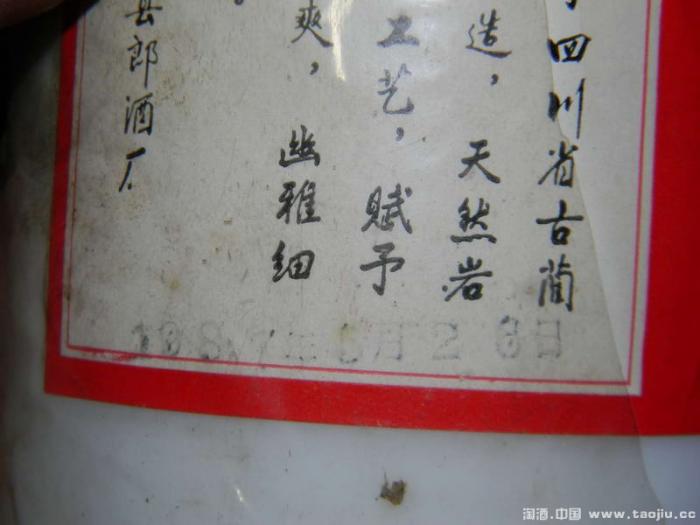 四川省古蔺
造，天然岩
工艺，赋予
爽，幽雅细
。
县郎酒厂
198.7年 月26日
淘酒.中国 www.taojiu.cc